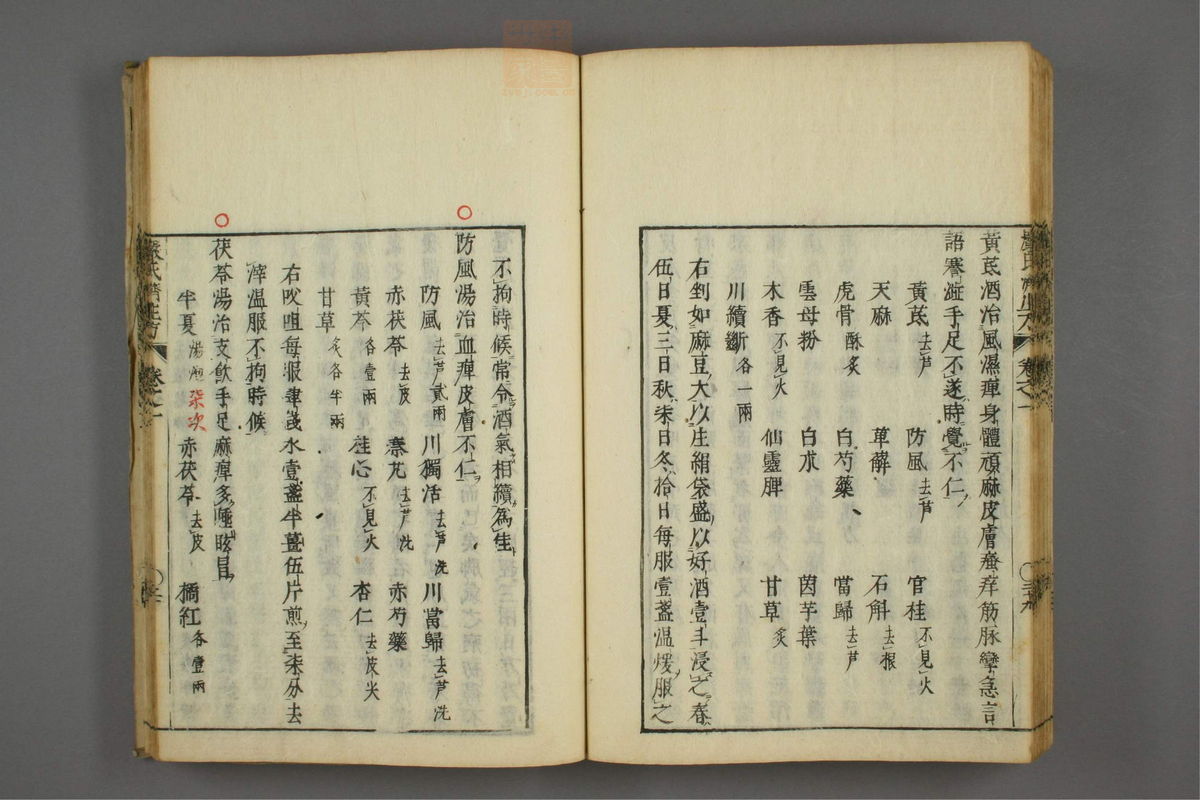 黃芪酒治風濕痺身體頑麻皮膚瘙痒筋脉攣急言
語蹇澁手足不遂時覺不仁
黃芪去芦 防風去芦 官桂不見火
天麻 萆薢 石斛去根
虎骨酥炙 白芍藥 當歸去芦
雲母粉 白朮 茵芋葉
木香不見火 仙靈脾 甘草炙
川續斷各一兩
右剉如麻豆大以生絹袋盛以好酒壹斗浸之春
伍日夏三日秋柒日冬拾日每服壹盞溫煖服之
不拘時候常令酒氣相續為佳
防風湯治血痺皮膚不仁
防風去芦貳兩 川獨活去芦洗 川當歸去芦洗
赤茯苓去皮 秦艽去芦洗 赤芍藥
黃芩各壹兩 桂心不見火 杏仁去皮尖
甘草炙各半兩
右㕮咀每服肆錢水壹盞半薑伍片煎至柒分去
滓溫服不拘時候
茯苓湯治支飲手足麻痺多睡眩冒
半夏湯泡柒次 赤茯苓去皮 橘紅各壹兩
嚴氏濟生方 卷之一